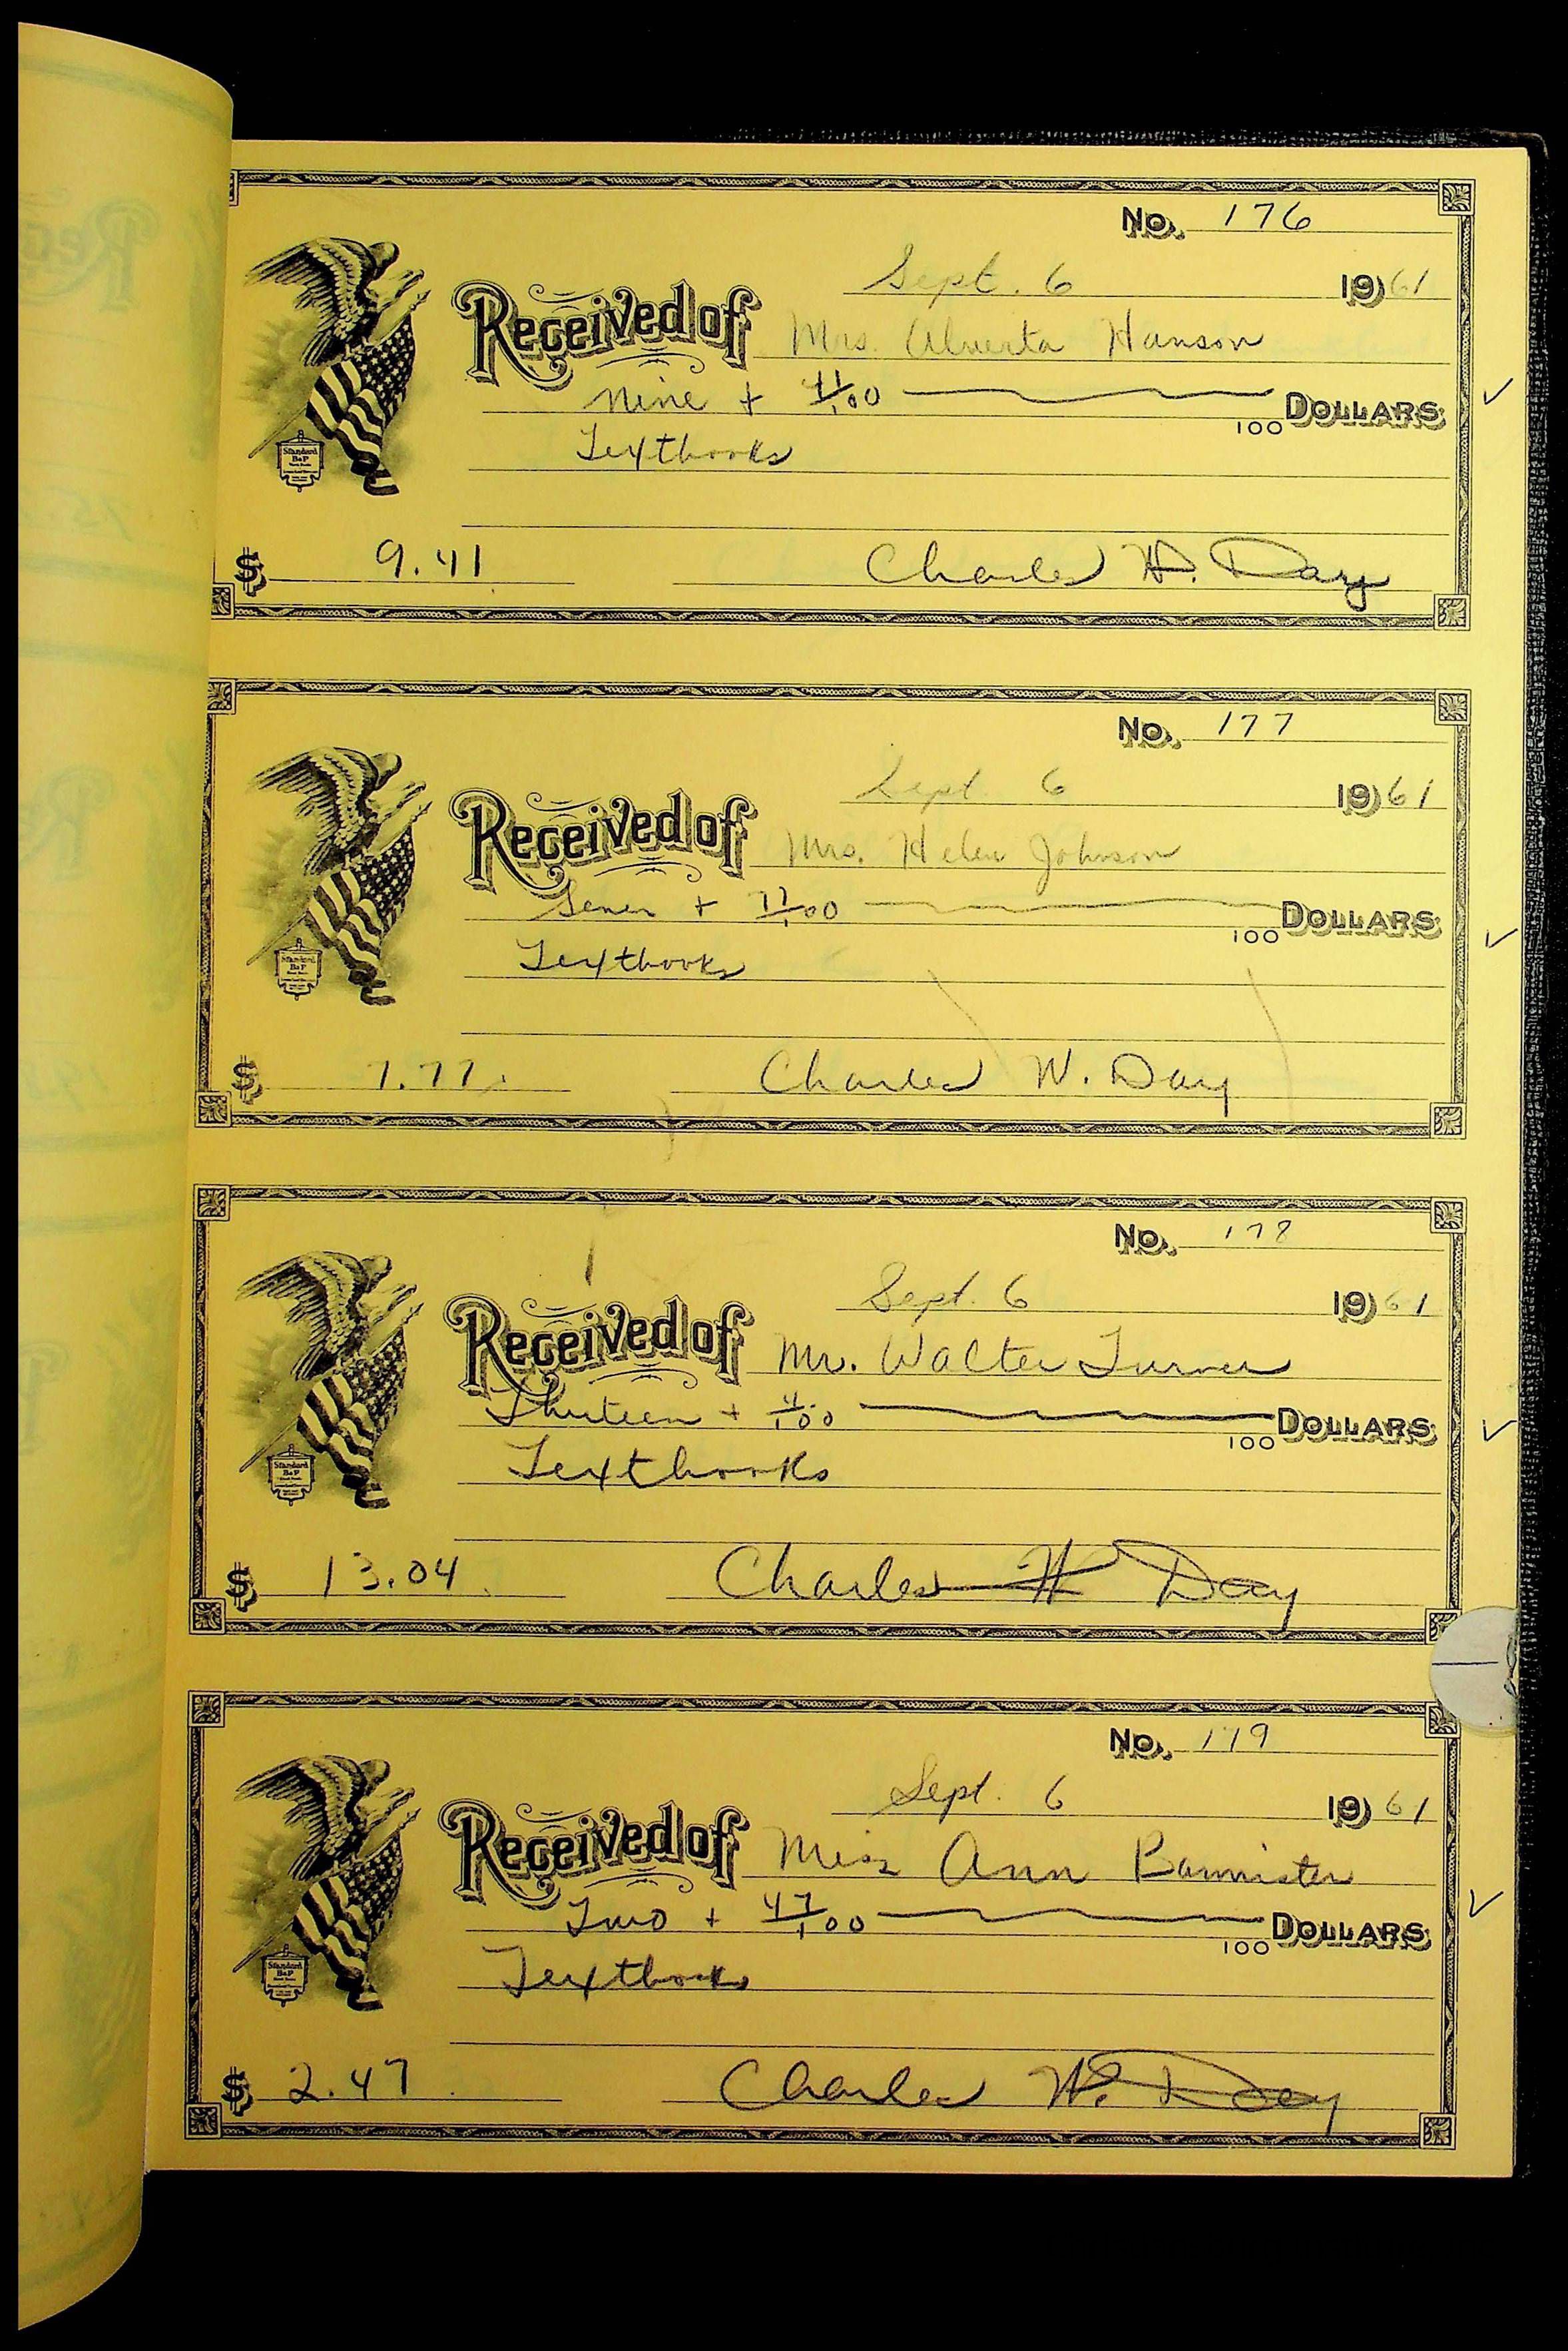 No. 176
Sept. 6 1961
Received of Mrs. Alverta Hanson
Nine + 41/100 100 Dollars ✓
Textbooks
$ 9.41 Charles W. Day
No. 177
Sept. 6 1961
Received of Mrs. Helen Johnson
Seven + 77/100 100 Dollars ✓
Textbooks
$ 7.77 Charles W. Day
No. 178
Sept. 6 1961
Received of Mr. Walter Turner
Thirteen + 4/100 100 Dollars ✓
Textbooks
$ 13.04 Charles W Day
No. 179
Sept. 6 1961
Received of Miss Ann Bannister
Two + 47/100 100 Dollars ✓
Textbooks
$ 2.47 Charles W. Day
Standard
B&P